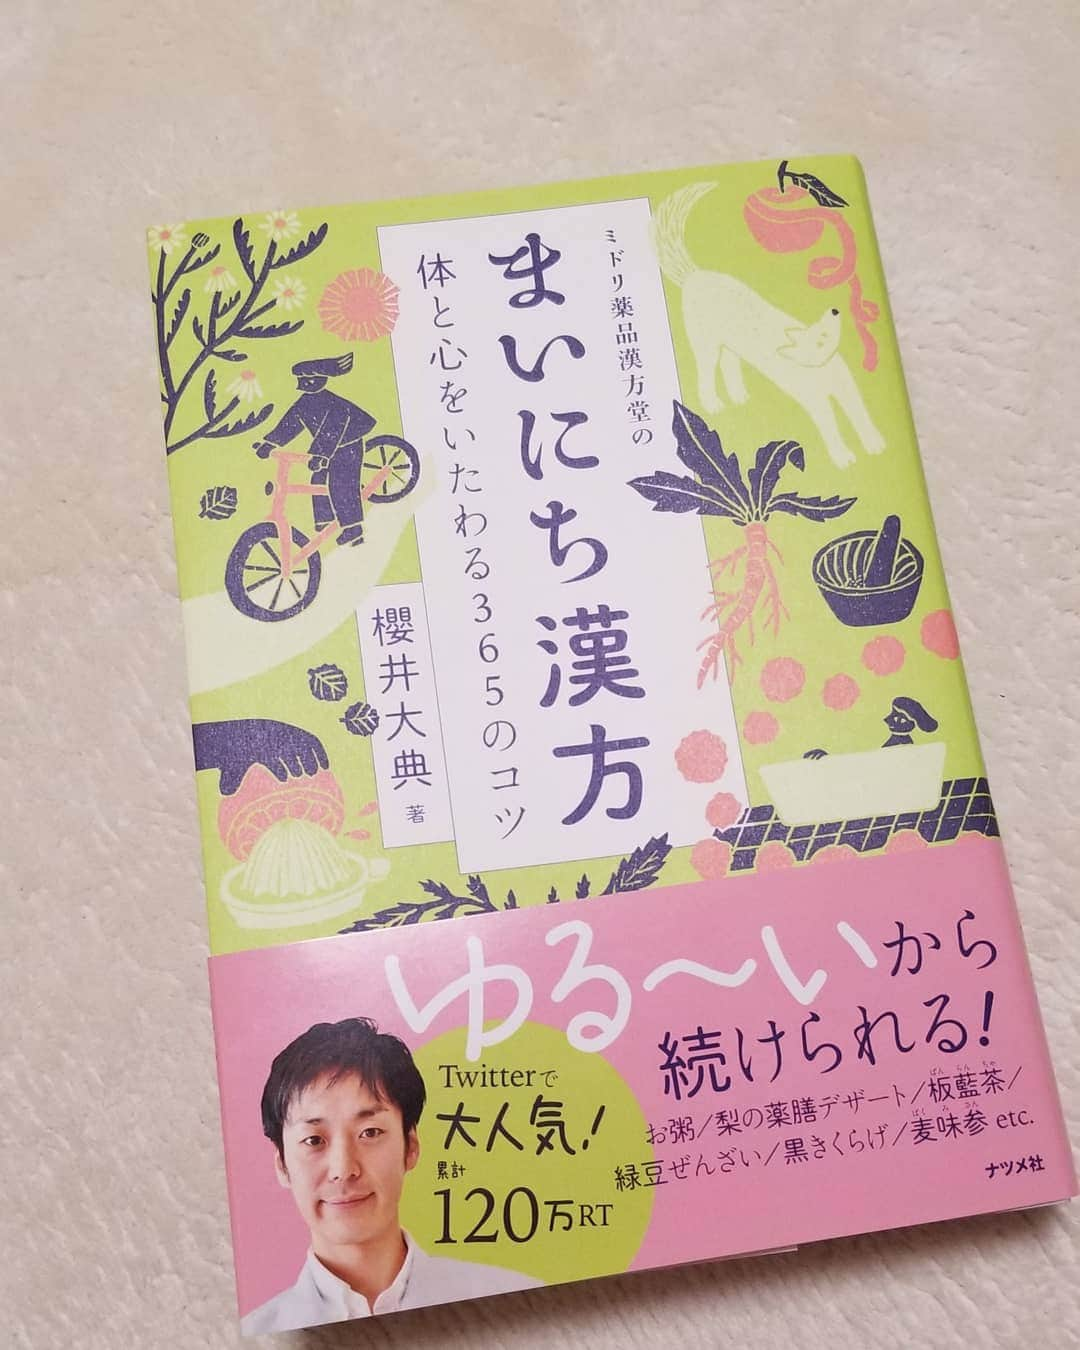 ミドリ薬品漢方堂の
まいにち漢方
体と心をいたわる365のコツ
櫻井大典 著
ゆる〜いから
続けられる!
Twitterで
大人気!
累計
120万RT
お粥/梨の薬膳デザート/板藍茶/
ばん らん ちゃ
緑豆ぜんざい/黒きくらげ/麦味参 etc.
ばく み さん
ナツメ社